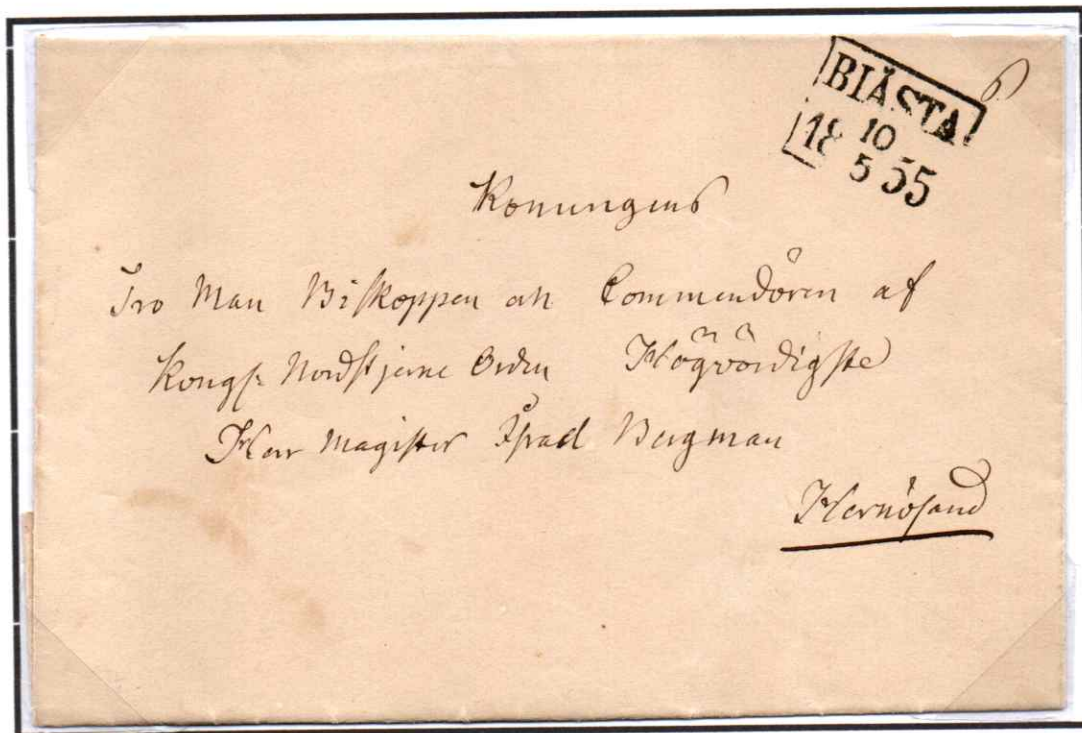 BIÄSTA
10
18 55
5
6
Konungens
Tro Man Biskoppen och Commendören af
Kongl. Nordstjerne Orden Högvördigste
Herr Magister Israel Bergman
Hernösand